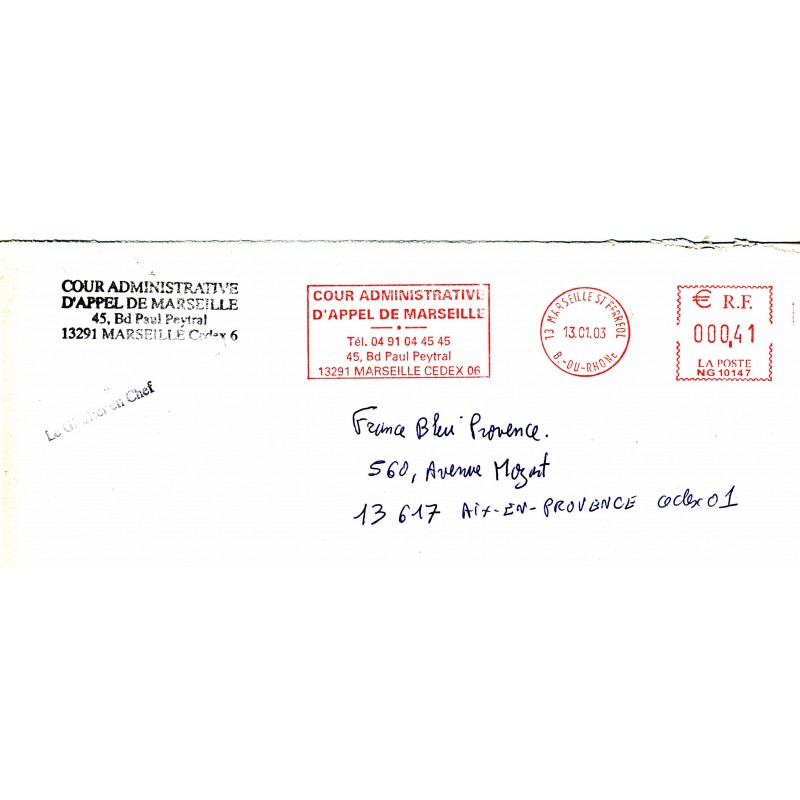 COUR ADMINISTRATIVE
D'APPEL DE MARSEILLE
45, Bd Paul Peytral
13291 MARSEILLE Cedex 6
Le Greffier en Chef
COUR ADMINISTRATIVE
D'APPEL DE MARSEILLE
Tél. 04 91 04 45 45
45, Bd Paul Peytral
13291 MARSEILLE CEDEX 06
13 MARSEILLE ST FERREOL
13.01.03
B.-DU-RHONE
€ R.F.
000,41
LA POSTE
NG 10147
France Bleu Provence.
560, Avenue Mozart
13 617 AIX-EN-PROVENCE cedex 01